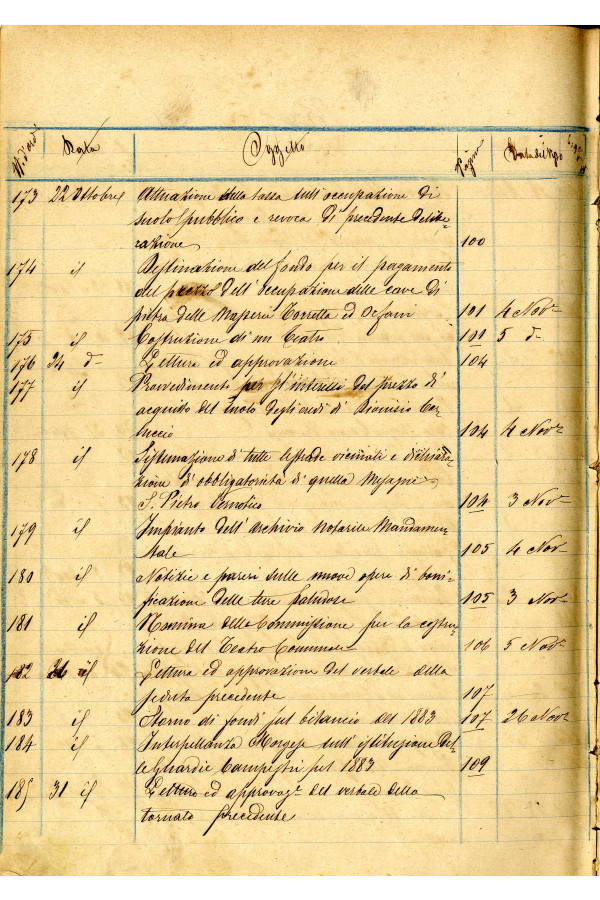 N. d'ord Data Oggetto Pagina Data del
173 22 Ottobre Attuazione della tassa sull'occupazione di
suolo pubblico e revoca di precedente delibe-
razione 100
174 id Destinazione del fondo per il pagamento
del prezzo dell'occupazione delle cave di
pietra delle Masserie Torretta ed Orfani 101 4 Nov.e
175 id Costruzione di un Teatro 101 5 d.o
176 24 d.o Lettura ed approvazione 104
177 id Provvedimento per gl'interessi del prezzo di
acquisto del suolo degli eredi di Dionisio
104 4 Nov.e
178 id Sistemazione di tutte le strade vicinali e dichiara-
zione di obbligatorietà di quella Mesagne
S. Pietro Vernotico 104 3 Nov.e
179 id Impianto dell'archivio notarile Mandamen-
tale 105 4 Nov.e
180 id Notizie e pareri sulle nuove opere di boni-
ficazione delle terre paludose 105 3 Nov.e
181 id Nomina della Commissione per la costru-
zione del Teatro Comunale 106 5 Nov.e
182 26 id Lettura ed approvazione del verbale della
seduta precedente 107
183 id Storno di fondi sul bilancio del 1883 107 26 Nov.e
184 id Interpellanza Morgese sull'istituzione del-
le Guardie Campestri pel 1883 109
185 31 id Lettura ed approvaz.e del verbale della
tornata precedente